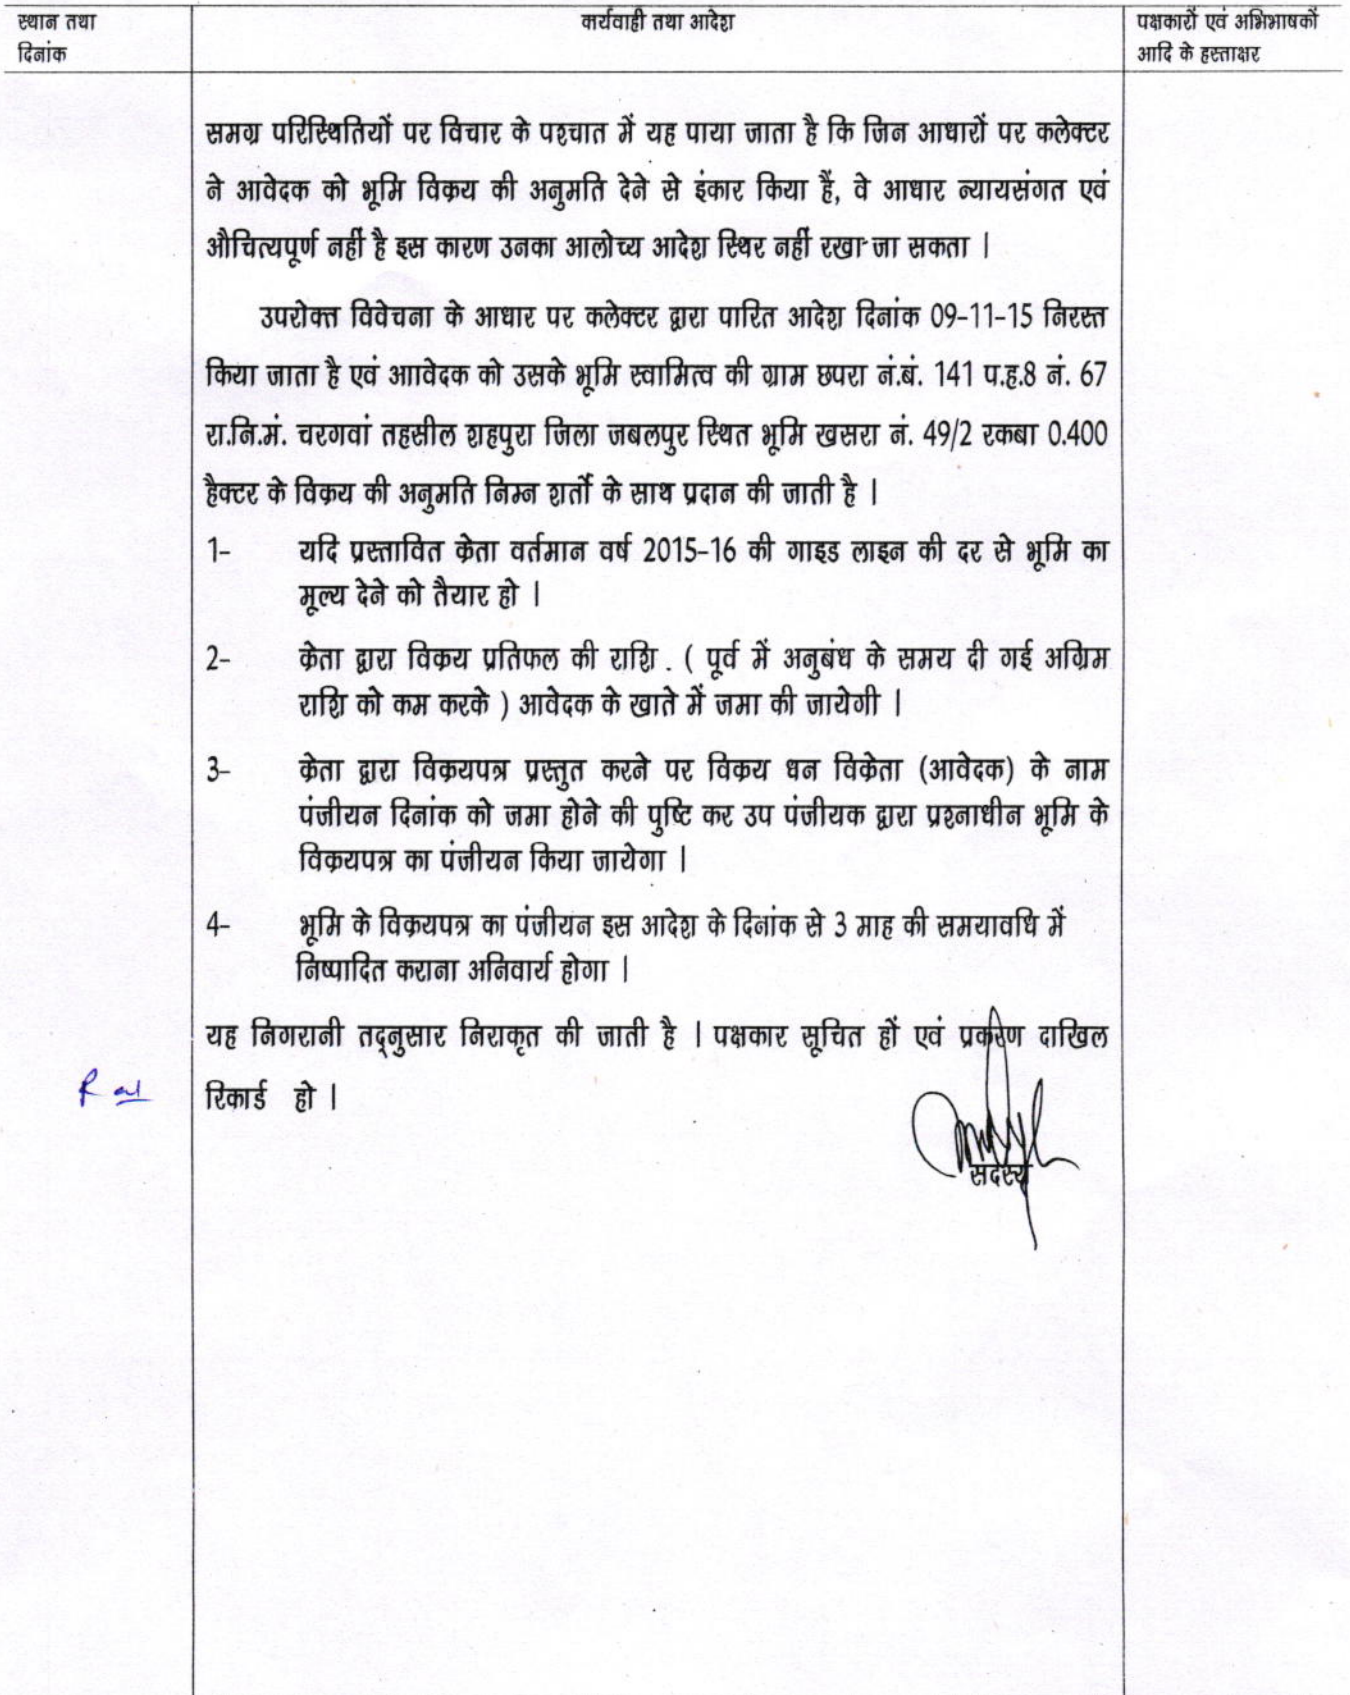 स्थान तथा
दिनांक
कार्यवाही तथा आदेश
पक्षकारों एवं अभिभाषकों
आदि के हस्ताक्षर
समग्र परिस्थितियों पर विचार के पश्चात में यह पाया जाता है कि जिन आधारों पर कलेक्टर
ने आवेदक को भूमि विक्रय की अनुमति देने से इंकार किया हैं, वे आधार न्यायसंगत एवं
औचित्यपूर्ण नहीं है इस कारण उनका आलोच्य आदेश स्थिर नहीं रखा जा सकता ।
उपरोक्त विवेचना के आधार पर कलेक्टर द्वारा पारित आदेश दिनांक 09-11-15 निरस्त
किया जाता है एवं आावेदक को उसके भूमि स्वामित्व की ग्राम छपरा नं.बं. 141 प.ह.8 नं. 67
रा.नि.मं. चरगवां तहसील शहपुरा जिला जबलपुर स्थित भूमि खसरा नं. 49/2 रकबा 0.400
हैक्टर के विक्रय की अनुमति निम्न शर्तो के साथ प्रदान की जाती है ।
1- यदि प्रस्तावित क्रेता वर्तमान वर्ष 2015-16 की गाइड लाइन की दर से भूमि का
मूल्य देने को तैयार हो ।
2- क्रेता द्वारा विक्रय प्रतिफल की राशि . ( पूर्व में अनुबंध के समय दी गई अग्रिम
राशि को कम करके ) आवेदक के खाते में जमा की जायेगी ।
3- क्रेता द्वारा विक्रयपत्र प्रस्तुत करने पर विक्रय धन विक्रेता (आवेदक) के नाम
पंजीयन दिनांक को जमा होने की पुष्टि कर उप पंजीयक द्वारा प्रश्नाधीन भूमि के
विक्रयपत्र का पंजीयन किया जायेगा ।
4- भूमि के विक्रयपत्र का पंजीयन इस आदेश के दिनांक से 3 माह की समयावधि में
निष्पादित कराना अनिवार्य होगा ।
यह निगरानी तद्नुसार निराकृत की जाती है । पक्षकार सूचित हों एवं प्रकरण दाखिल
रिकार्ड हो ।
सदस्य